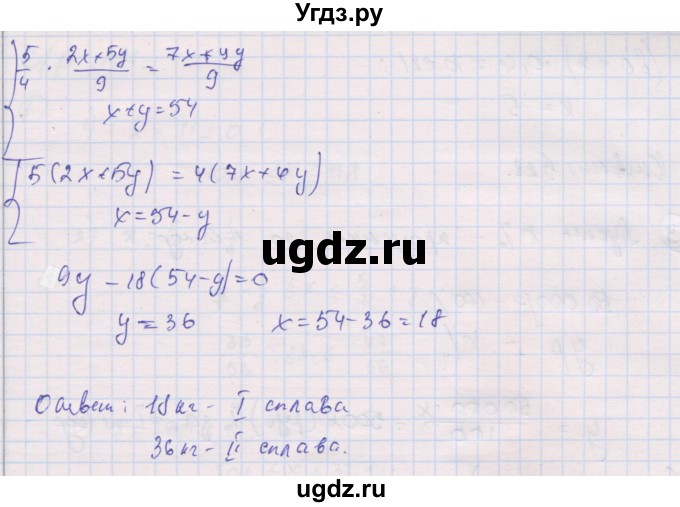 Угдз.ру
5/4 · (2x+5y)/9 = (7x+4y)/9
x+y=54
5(2x+5y) = 4(7x+4y)
x=54-y
ugdz.ru
9y - 18(54-y)=0
y=36 x=54-36=18
Ответ: 18кг - I сплава
36кг - II сплава.
ugdz.ru